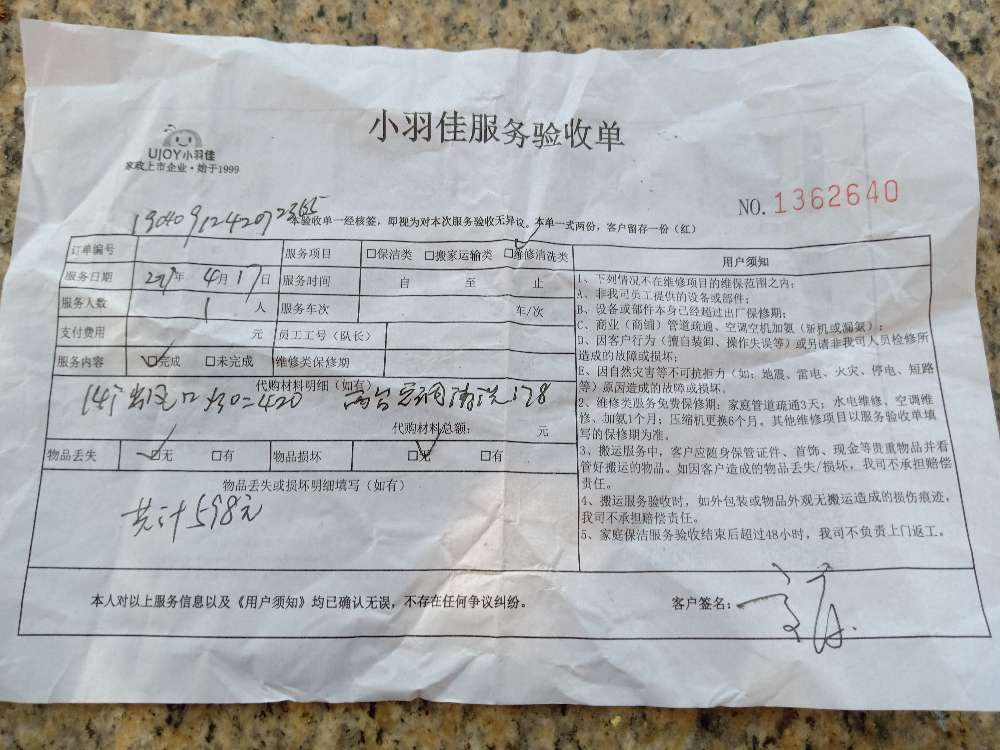 小羽佳服务验收单
UJOY小羽佳
家政上市企业·始于1999
NO. 1362640
本验收单一经核签，即视为对本次服务验收无异议。本单一式两份，客户留存一份（红）
订单编号 服务项目 □保洁类 □搬家运输类 □维修清洗类
服务日期 年 4月17日 服务时间 自 至 止
服务人数 1 人 服务车次 车/次
支付费用 元 员工工号（队长）
服务内容 □完成 □未完成 维修类保修期
代购材料明细（如有）
14个出风口 =420 两台空调清洗178
代购材料总额： 元
物品丢失 □无 □有 物品损坏 □无 □有
物品丢失或损坏明细填写（如有）
共计598元
用户须知
1、下列情况不在维修项目的维保范围之内：
A、非我司员工提供的设备或部件；
B、设备或部件本身已经超过出厂保修期；
C、商业（商铺）管道疏通、空调空机加氨（新机或漏氨）；
D、因客户行为（擅自装卸、操作失误等）或另请非我司人员检修所
造成的故障或损坏；
E、因自然灾害等不可抗拒力（如：地震、雷电、火灾、停电、短路
等）原因造成的故障或损坏。
2、维修类服务免费保修期：家庭管道疏通3天；水电维修、空调维
修、加氨1个月；压缩机更换6个月。其他维修项目以服务验收单填
写的保修期为准。
3、搬运服务中，客户应随身保管证件、首饰、现金等贵重物品并看
管好搬运的物品。如因客户造成的物品丢失/损坏，我司不承担赔偿
责任。
4、搬运服务验收时，如外包装或物品外观无搬运造成的损伤痕迹，
我司不承担赔偿责任。
5、家庭保洁服务验收结束后超过48小时，我司不负责上门返工。
本人对以上服务信息以及《用户须知》均已确认无误，不存在任何争议纠纷。
客户签名：